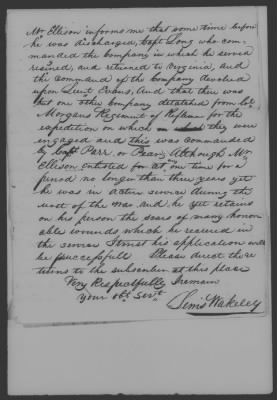 Mr Ellison informs me that some time before
he was discharged, Capt Long who com-
manded the company in which he served
resined and returned to Virginia, and
the command of the company devolved
upon Lieut Evans, And that there was
but one other company detatched from Col
Morgans Regiment of Riflemen for the
expedition on which they were
engaged and this was commanded
by Capt Parr or Parrs. Although Mr
Ellison enlisted for at one time for a
period no longer than three years yet
he was in active service during the
most of the war, and he yet retains
on his person the scars of many honor
able wounds which he received in
the service I trust his application will
be successfull Please direct the re
turns to the subscriber at this place
Very Respectfully I remain
Your obt Servt
Lewis Wakeley